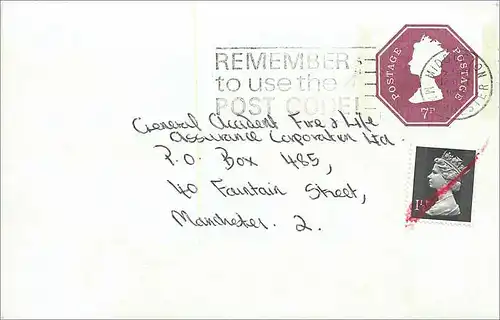 REMEMBER
to use the
POST CODE!
POSTAGE POSTAGE
7P
General Accident Fire & Life
Assurance Corporation Ltd.
P.O. Box 485,
40 Fountain Street,
Manchester. 2.